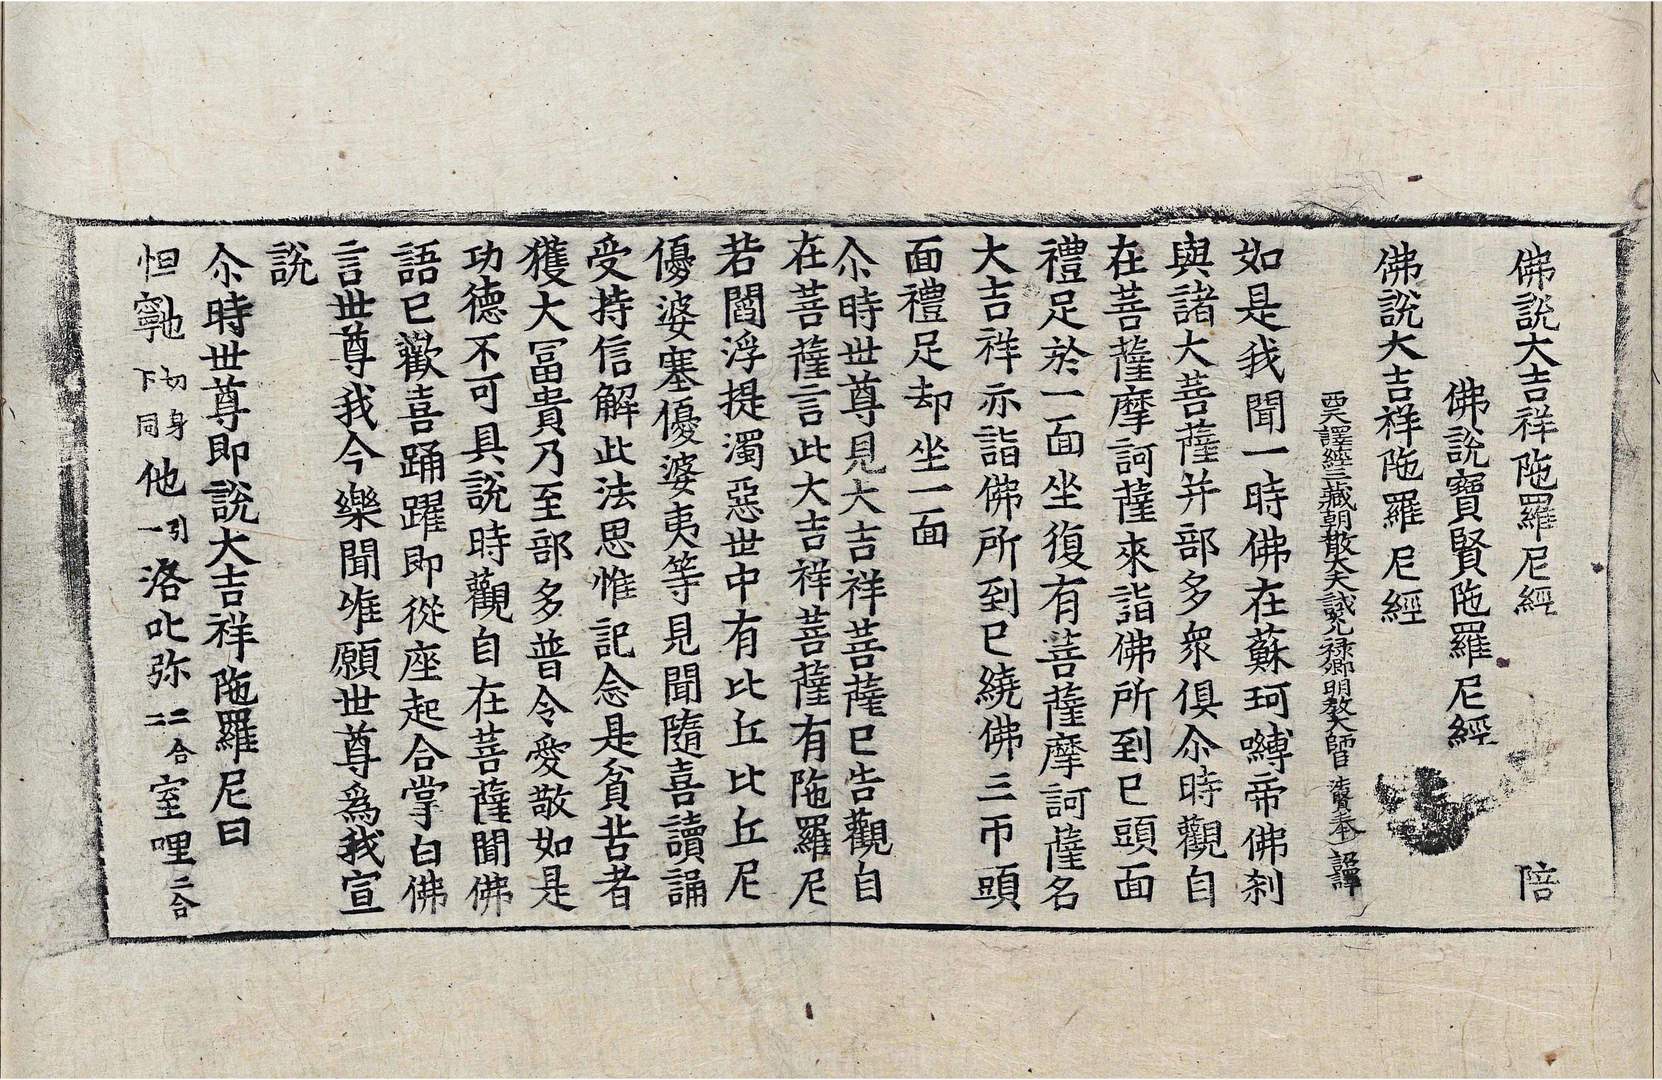 佛說大吉祥陁羅尼經 陪
佛說寶賢陁羅尼經
佛說大吉祥陁羅尼經
西天譯經三藏朝散大夫試光禄卿明教大師臣法賢奉 詔譯
如是我聞一時佛在蘇珂嚩帝佛刹
與諸大菩薩并部多衆俱尒時觀自
在菩薩摩訶薩來詣佛所到已頭面
禮足於一面坐復有菩薩摩訶薩名
大吉祥亦詣佛所到已繞佛三帀頭
面禮足却坐一面
尒時世尊見大吉祥菩薩已告觀自
在菩薩言此大吉祥菩薩有陁羅尼
若閻浮提濁惡世中有比丘比丘尼
優婆塞優婆夷等見聞隨喜讀誦
受持信解此法思惟記念是貧苦者
獲大冨貴乃至部多普令愛敬如是
功德不可具說時觀自在菩薩聞佛
語已歡喜踊躍即從座起合掌白佛
言世尊我今樂聞唯願世尊爲我宣
說
尒時世尊即說大吉祥陁羅尼曰
怛寧也切身下同他引一洛叱弥二合二室哩二合